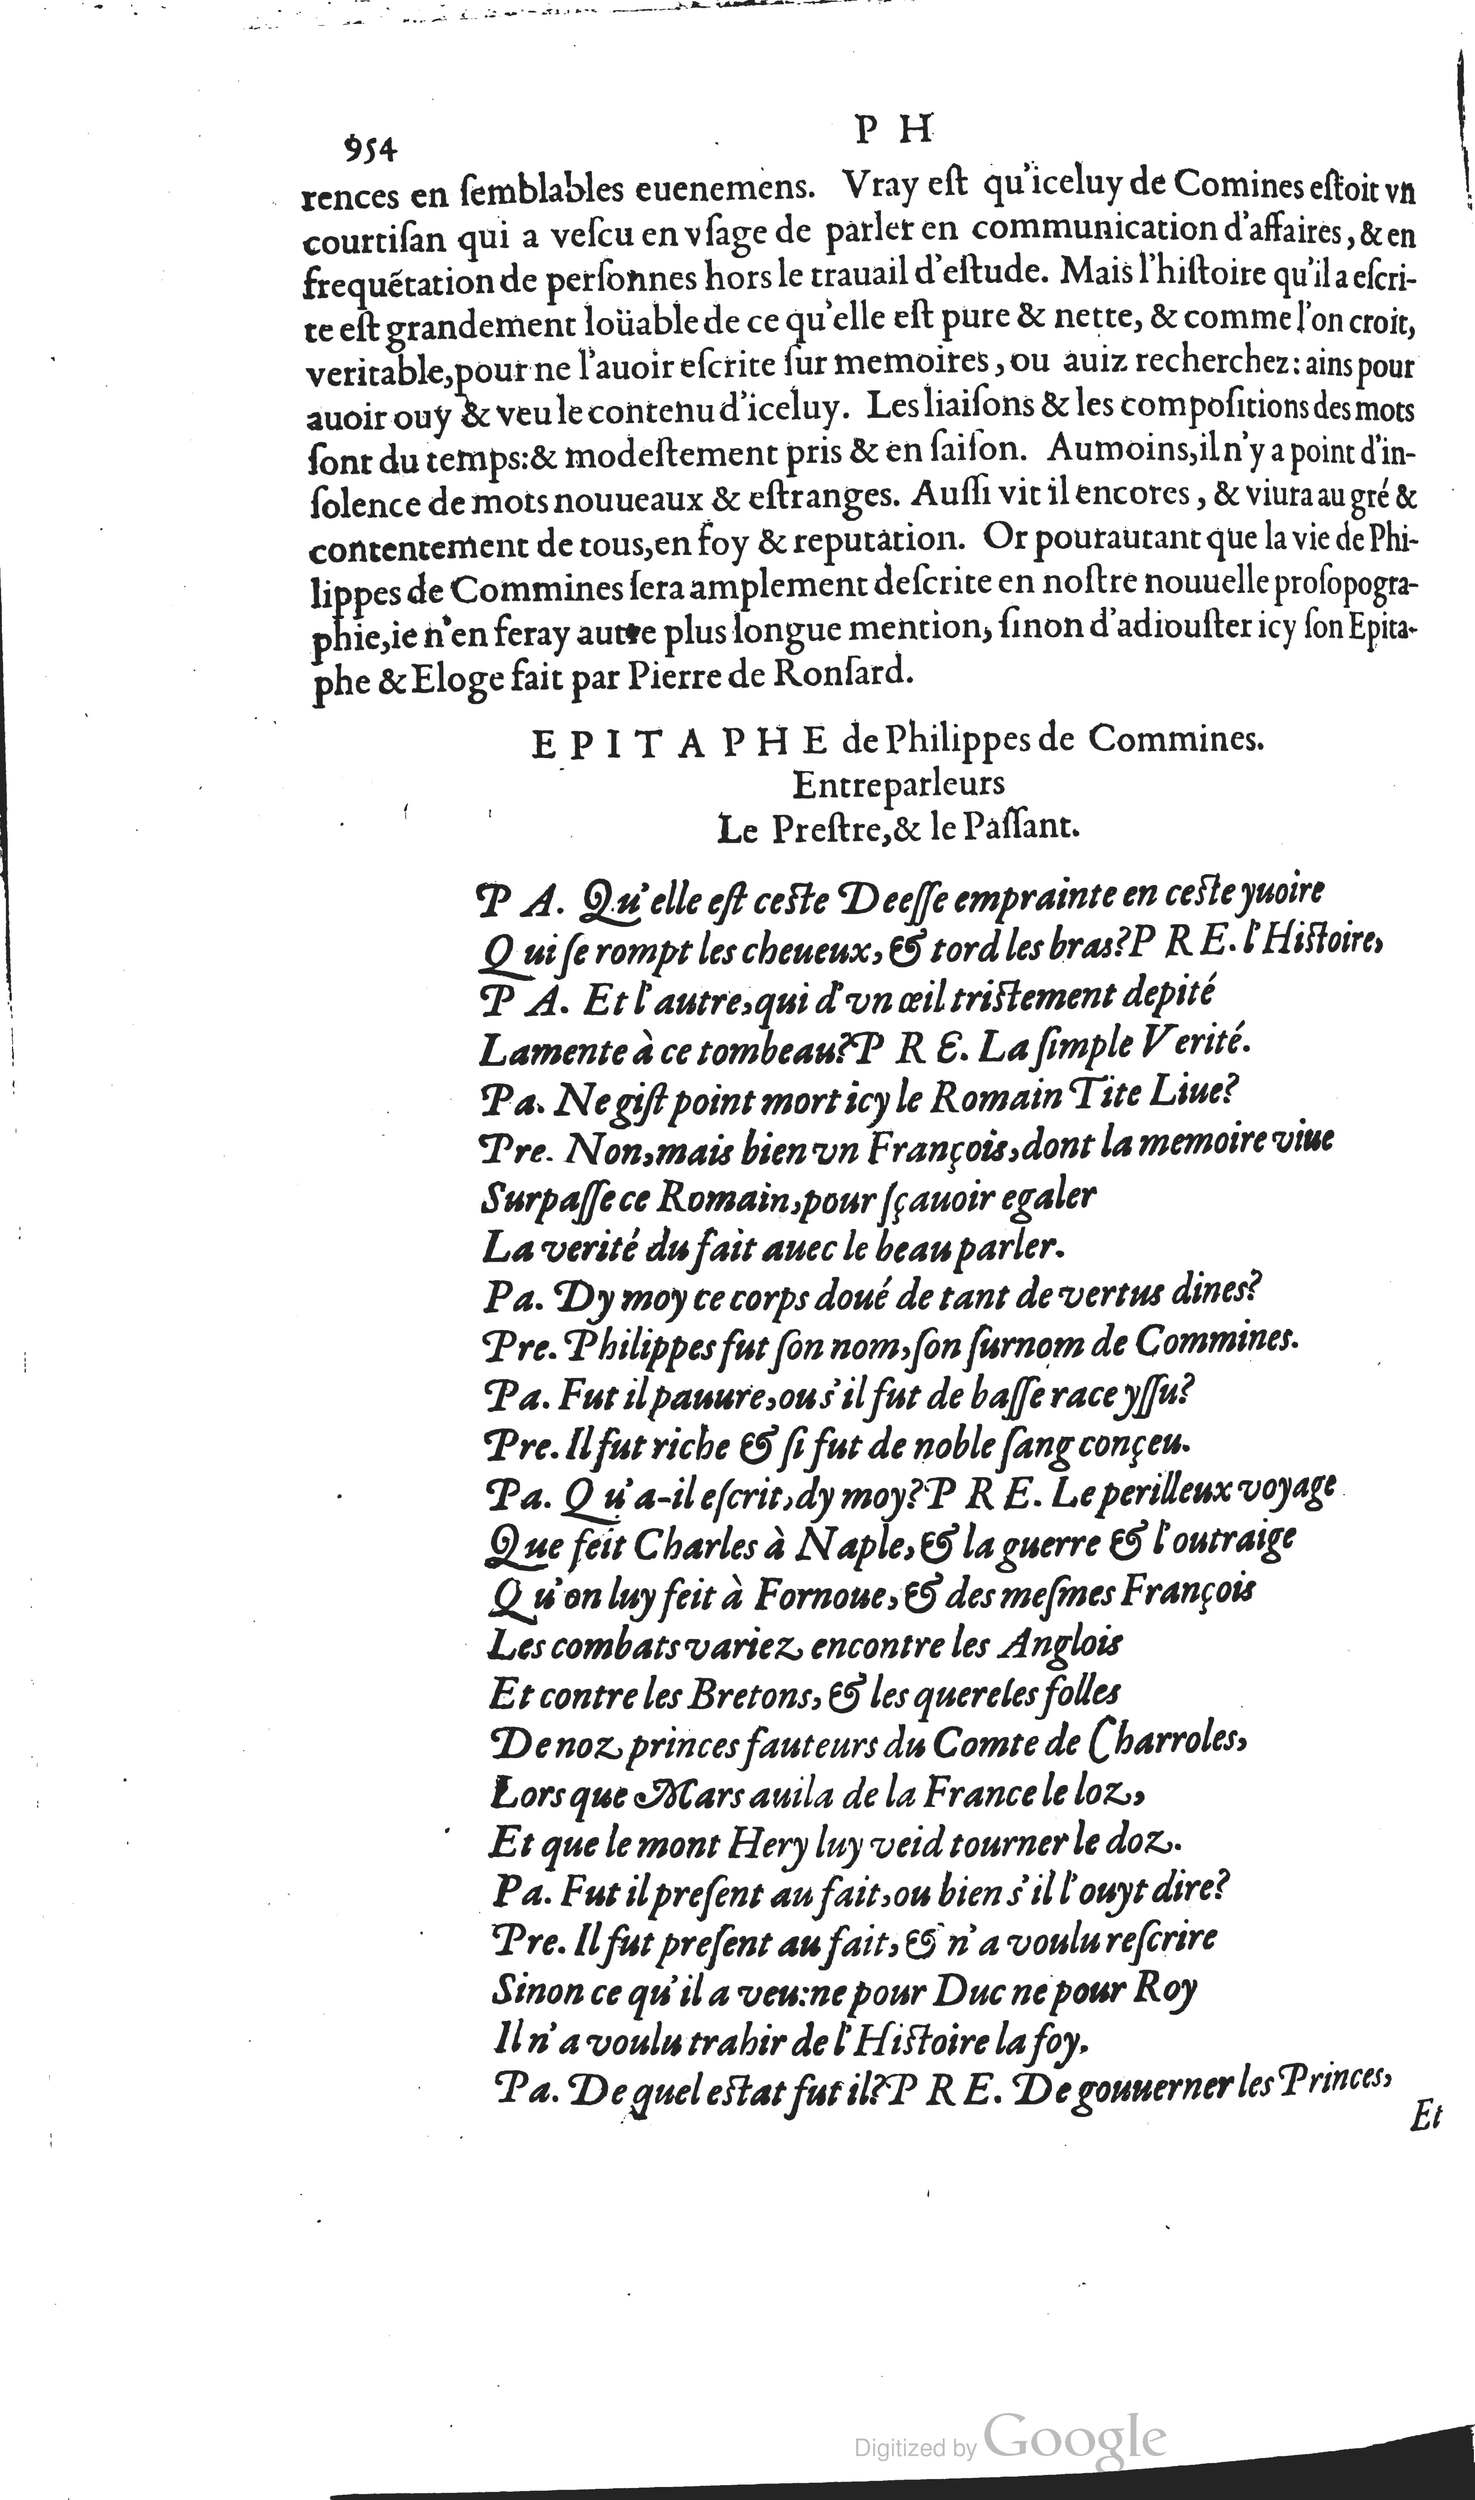 954
P H
rences en ſemblables euenemens. Vray eſt qu'iceluy de Comines eſtoit vn
courtiſan qui a veſcu en vſage de parler en communication d'affaires, & en
frequẽtation de perſonnes hors le trauail d'eſtude. Mais l'hiſtoire qu'il a eſcri-
te eſt grandement loüable de ce qu'elle eſt pure & nette, & comme l'on croit,
veritable, pour ne l'auoir eſcrite ſur memoires, ou auiz recherchez: ains pour
auoir ouy & veu le contenu d'iceluy. Les liaiſons & les compoſitions des mots
ſont du temps: & modeſtement pris & en ſaiſon. Aumoins, il n'y a point d'in-
ſolence de mots nouueaux & eſtranges. Auſſi vit il encores, & viura au gré &
contentement de tous, en foy & reputation. Or pourautant que la vie de Phi-
lippes de Commines ſera amplement deſcrite en noſtre nouuelle proſopogra-
phie, ie n'en feray autre plus longue mention, ſinon d'adiouſter icy ſon Epita-
phe & Eloge fait par Pierre de Ronſard.
EPITAPHE de Philippes de Commines.
Entreparleurs
Le Preſtre, & le Paſſant.
PA. Qu'elle eſt ceſte Deeſſe emprainte en ceſte yuoire
Qui ſe rompt les cheueux, & tord les bras? PRE. l'Hiſtoire,
PA. Et l'autre, qui d'vn œil triſtement depité
Lamente à ce tombeau? PRE. La ſimple Verité.
Pa. Ne giſt point mort icy le Romain Tite Liue?
Pre. Non, mais bien vn François, dont la memoire viue
Surpaſſe ce Romain, pour ſçauoir egaler
La verité du fait auec le beau parler.
Pa. Dy moy ce corps doué de tant de vertus dines?
Pre. Philippes fut ſon nom, ſon ſurnom de Commines.
Pa. Fut il pauure, ou s'il fut de baſſe race yſſu?
Pre. Il fut riche & ſi fut de noble ſang conçeu.
Pa. Qu'a-il eſcrit, dy moy? PRE. Le perilleux voyage
Que feit Charles à Naple, & la guerre & l'outraige
Qu'on luy feit à Fornoue, & des meſmes François
Les combats variez encontre les Anglois
Et contre les Bretons, & les quereles folles
De noz princes fauteurs du Comte de Charroles,
Lors que Mars auila de la France le loz,
Et que le mont Hery luy veid tourner le doz.
Pa. Fut il preſent au fait, ou bien s'il l'ouyt dire?
Pre. Il fut preſent au fait, & n'a voulu reſcrire
Sinon ce qu'il a veu: ne pour Duc ne pour Roy
Il n'a voulu trahir de l'Hiſtoire la foy.
Pa. De quel eſtat fut il? PRE. De gouuerner les Princes,
Et
Digitized by Google